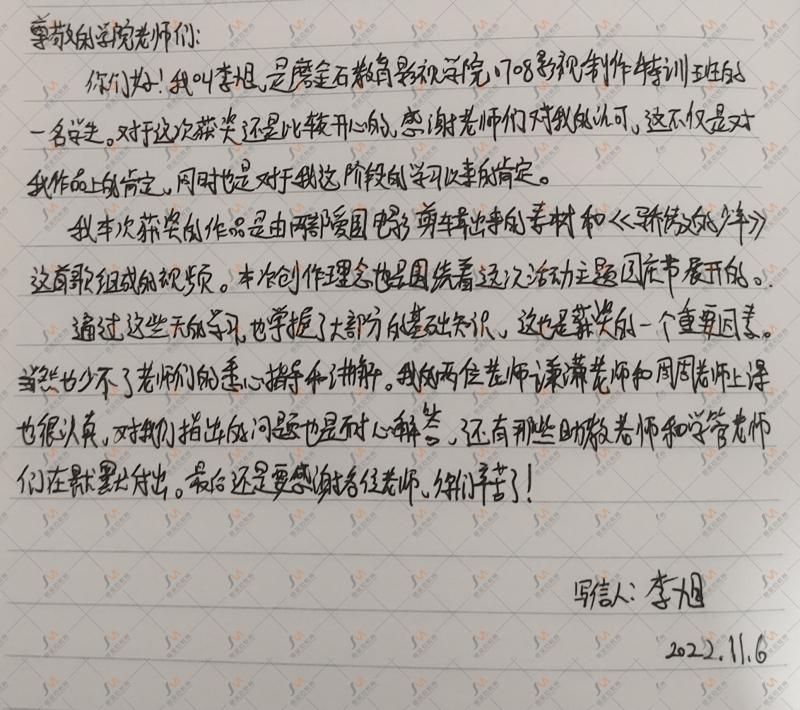 尊敬的学院老师们:
你们好！我叫李旭，是磨金石教育影视学院1708影视制作特训班的
一名学生。对于这次获奖还是比较开心的，感谢老师们对我的认可，这不仅是对
我作品上的肯定，同时也是对于我这阶段的学习以来的肯定。
我本次获奖的作品是由两部爱国电影剪辑出来的素材和《骄傲的少年》
这首歌组成的视频。本次创作理念也是围绕着这次活动主题国庆节展开的。
通过这些天的学习，也掌握了大部分的基础知识，这也是获奖的一个重要因素。
当然也少不了老师们的悉心指导和讲解。我的两位老师潇老师和周周老师上课
也很认真，对我们指出的问题也是耐心解答，还有那些助教老师和学管老师
们在默默付出。最后还是要感谢各位老师，你们辛苦了！
写信人：李旭
2022.11.6